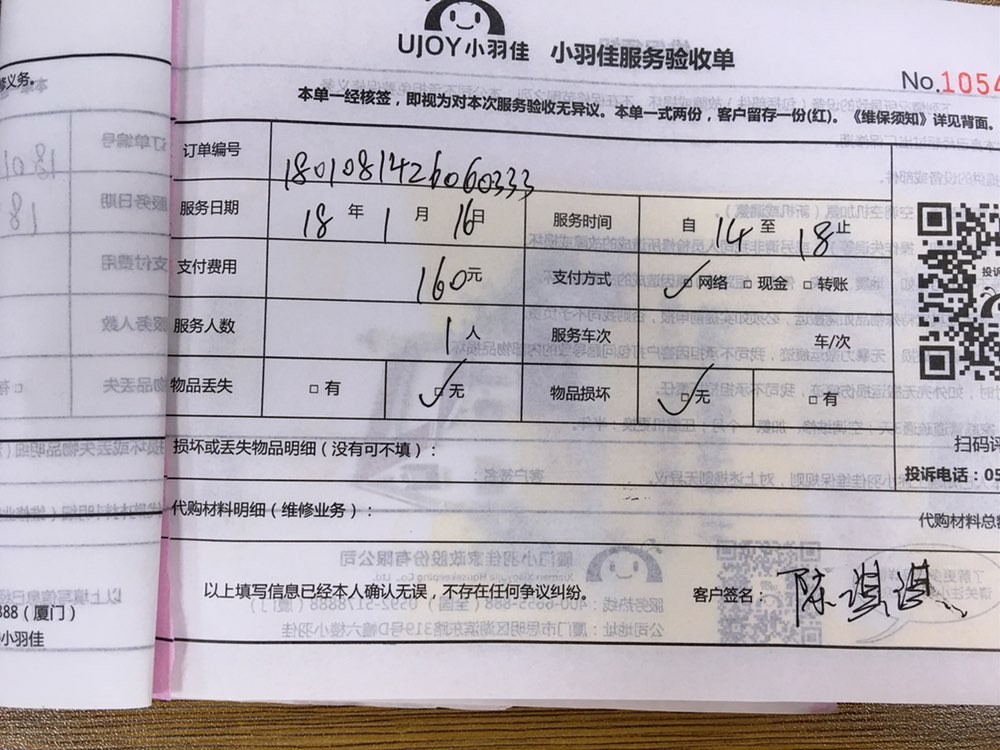 UJOY小羽佳 小羽佳服务验收单
No.1054
本单一经核签，即视为对本次服务验收无异议。本单一式两份，客户留存一份(红)。《维保须知》详见背面。
修义务。
订单编号 1801081426060333
服务日期 18 年 1 月 16 日 服务时间 自 14 至 18 止
支付费用 160 元 支付方式 ☑ 网络 □ 现金 □ 转账
服务人数 1 人 服务车次 车/次
物品丢失 □ 有 ☑ 无 物品损坏 ☑ 无 □ 有
投诉
损坏或丢失物品明细（没有可不填）：
扫码评
投诉电话：05
代购材料明细（维修业务）：
代购材料总额
以上填写信息已经本人确认无误，不存在任何争议纠纷。
客户签名：陈淇淇
888（厦门）
小羽佳